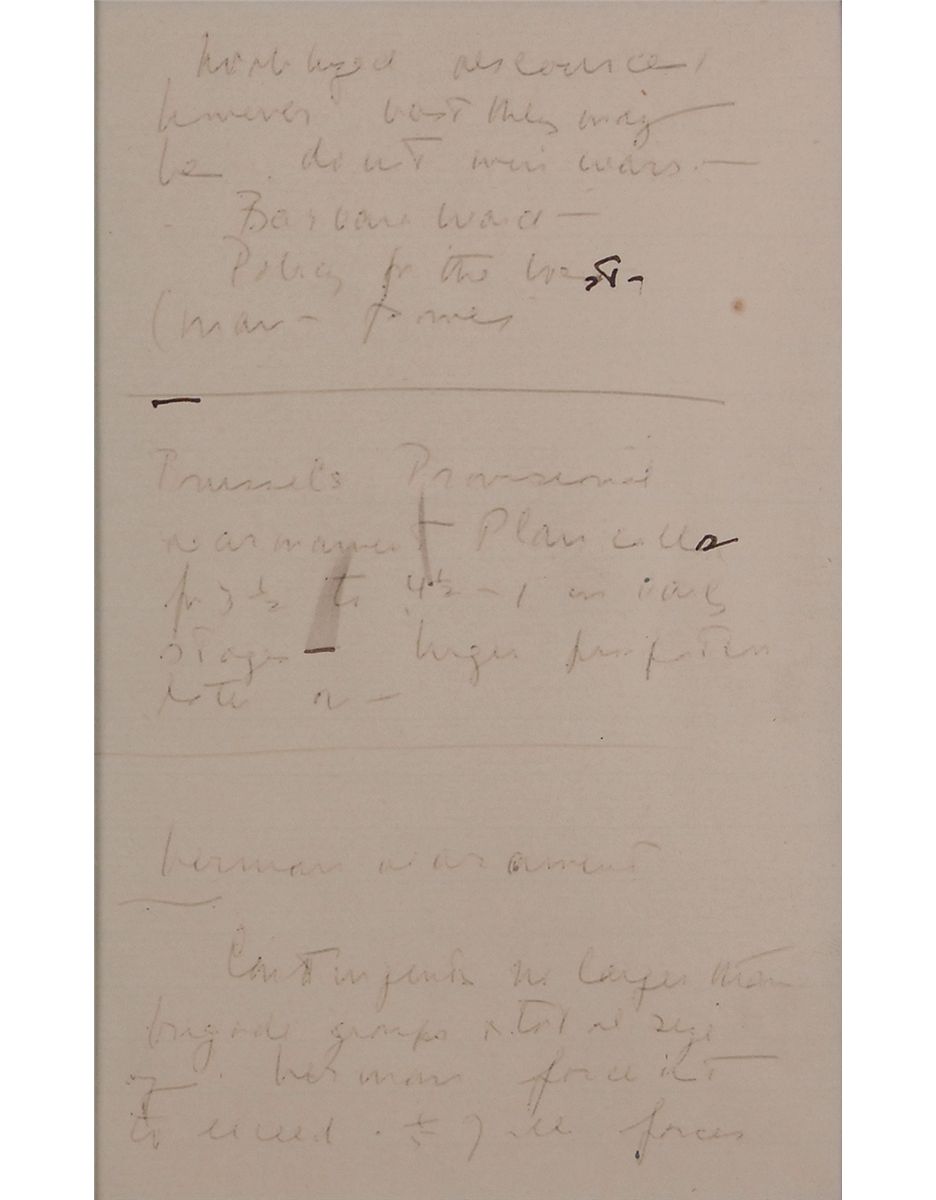 resources
however vast they may
be don't win wars.—
Barbara Ward—
Policy for the West—
Brussels Provisional
rearmament Plan calls
for 3 ½ to 4 ½ - 1 in early
stages — larger proportion
later on —
German rearmament
Contingents no larger than
brigade groups & total size
of German force not
to exceed 1/5 of all forces